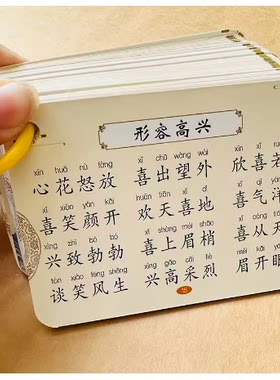 形容高兴
xīn huā nù fàng xǐ chū wàng wài xīn xǐ
心花怒放 喜出望外 欣喜若
xǐ xiào yán kāi huān tiān xǐ dì xǐ qì
喜笑颜开 欢天喜地 喜气洋
xìng zhì bó bó xǐ shàng méi shāo xǐ cóng
兴致勃勃 喜上眉梢 喜从天
tán xiào fēng shēng xìng gāo cǎi liè méi kāi
谈笑风生 兴高采烈 眉开眼